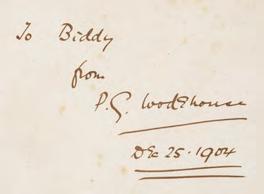 To Biddy
from
P. G. Wodehouse
Dec 25. 1904